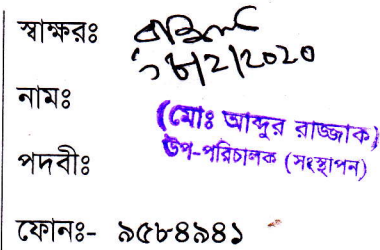 স্বাক্ষরঃ
১৮/2/2020
নামঃ
(মোঃ আব্দুর রাজ্জাক)
পদবীঃ উপ-পরিচালক (সংস্থাপন)
ফোনঃ- ৯৫৮৪৯৪১